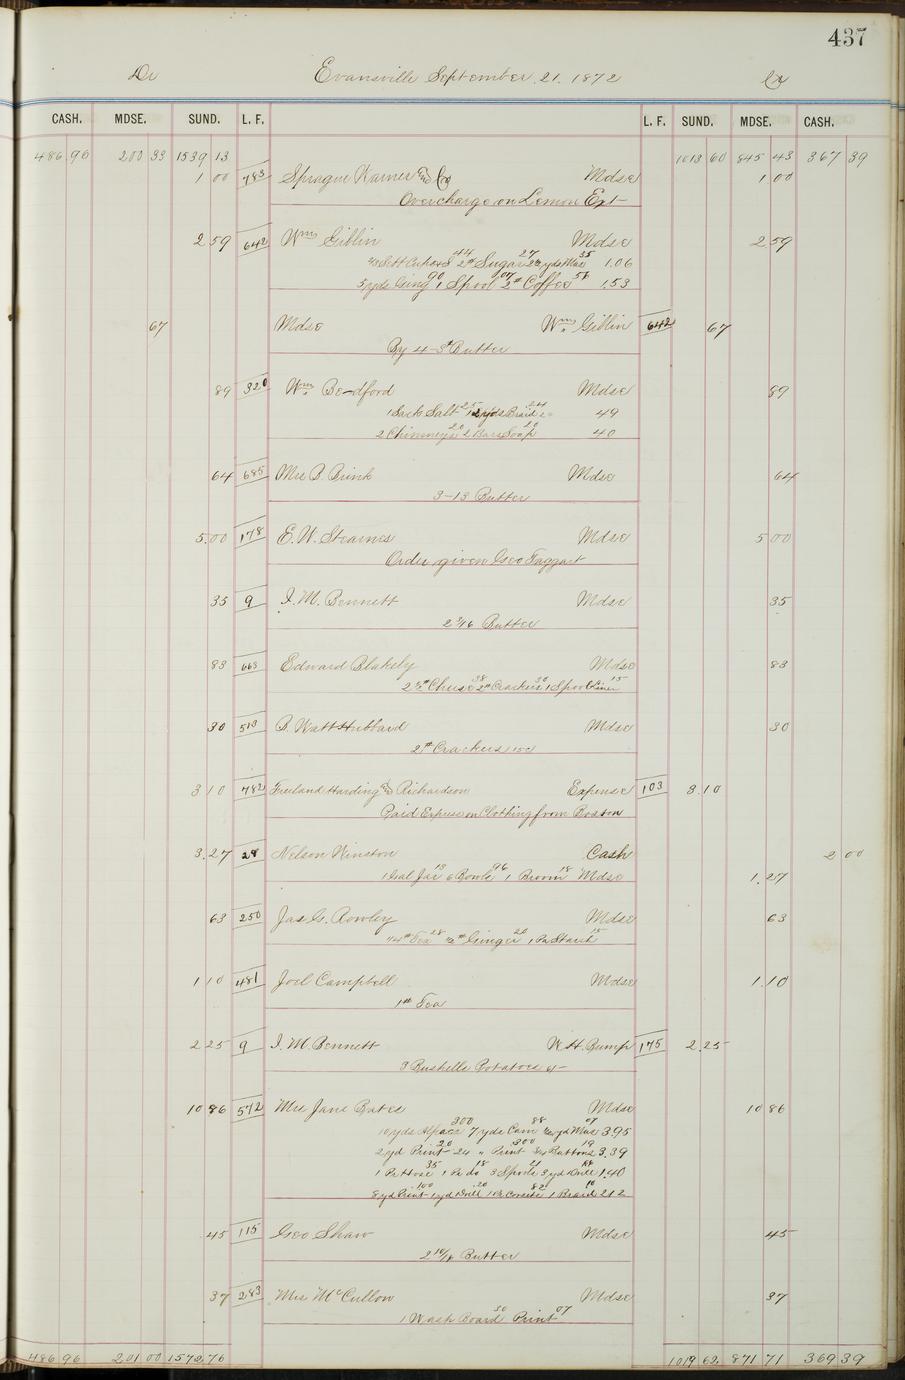 437
Dr Evansville September 21. 1872 Cr
CASH. MDSE. SUND. L. F. L. F. SUND. MDSE. CASH.
486 96 200 33 1539 13 1013 60 845 43 367 39
1 00 783 Sprague Warner and Co Mdse 1 00
Overcharge on Lemon Ext
2 59 642 Wm Giblin Mdse 2 59
Sett Cups & S 44 2# Sugar 27 yds Mus 35 1.06
5 yds Ging 90 1 Spool 07 2# Coffee 56 1.53
67 Mdse Wm. Giblin 642 67
By 4-3# Butter
89 320 Wm. Bedford Mdse 89
1 Sack Salt 25 12 yds Braid 24 49
2 Chimneys 20 2 Bars Soap 20 40
64 685 Mrs B. Brink Mdse 64
3-13 Butter
5.00 178 E. W. Stearnes Mdse 5 00
Order given Geo Taggart
35 9 I. M. Bennett Mdse 35
2 3/16 Butter
83 663 Edward Blakely Mdse 83
2# Cheese 38 2# Crackers 30 1 Spool Linen 15
30 513 B. Watt Hubbard Mdse 30
2# Crackers 15c
3 10 782 Freeland Harding & Richardson Expense 103 3.10
Paid Express on Clothing from Boston
3.27 28 Nelson Winston Cash 2 00
1 Gal Jar 13 6 Bowls 96 1 Broom 18 Mdse 1.27
63 250 Jas G. Rowley Mdse 63
1/4# Tea 28 1/2# Ginger 20 1 Pa Starch 15
1 10 481 Joel Campbell Mdse 1.10
1# Tea
2 25 9 I. M. Bennett W. H. Bump 175 2.25
3 Bushells Potatoes 6/-
10 86 572 Mrs Jane Bates Mdse 10 86
10 yds Alpaca 300 7 yds Cam 88 yd Mus 07 3.95
2 yd Print 20 24 " Print 300 3/4 Buttons 19 3.39
1 Pr Hose 35 1 Pr do 18 3 Spools 21 3 yd Drill 1.40
8 yd Print 100 1 yd Drill 20 1 Pr Corsets 82 1 Braid 10 212
45 115 Geo Shaw Mdse 45
2 14/16 Butter
37 283 Mrs McCullow Mdse 37
1 Wash Board 30 Print 07
486 96 201 00 1572 76 1019 62 871 71 369 39